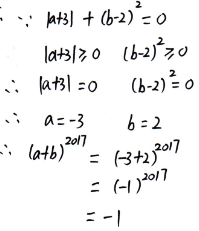 ∵ |a+3| + (b-2)² = 0
|a+3| ≥ 0 (b-2)² ≥ 0
∴ |a+3| = 0 (b-2)² = 0
∴ a = -3 b = 2
∴ (a+b)²⁰¹⁷ = (-3+2)²⁰¹⁷
= (-1)²⁰¹⁷
= -1